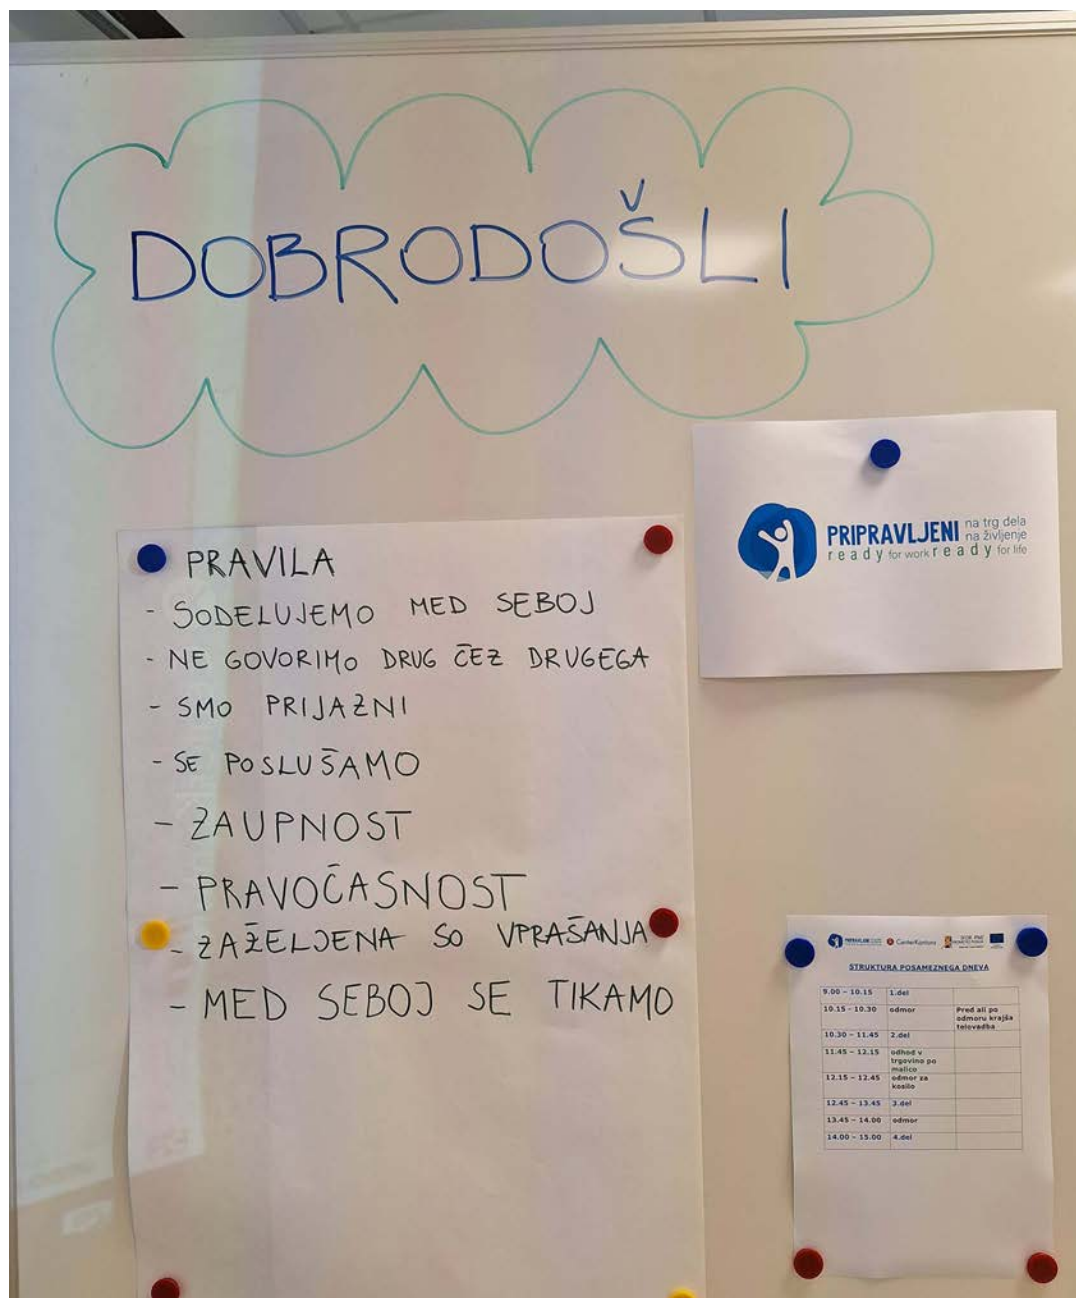 DOBRODOŠLI
PRIPRAVLJENI na trg dela
na življenje
ready for work ready for life
PRAVILA
- SODELUJEMO MED SEBOJ
- NE GOVORIMO DRUG ČEZ DRUGEGA
- SMO PRIJAZNI
- SE POSLUŠAMO
- ZAUPNOST
- PRAVOČASNOST
- ZAŽELJENA SO VPRAŠANJA
- MED SEBOJ SE TIKAMO
PRIPRAVLJENI CenterKontura
STRUKTURA POSAMEZNEGA DNEVA
9.00 – 10.15 1.del
10.15 – 10.30 odmor Pred ali po
odmoru krajša
telovadba
10.30 – 11.45 2.del
11.45 – 12.15 odhod v
trgovino po
malico
12.15 – 12.45 odmor za
kosilo
12.45 – 13.45 3.del
13.45 – 14.00 odmor
14.00 – 15.00 4.del